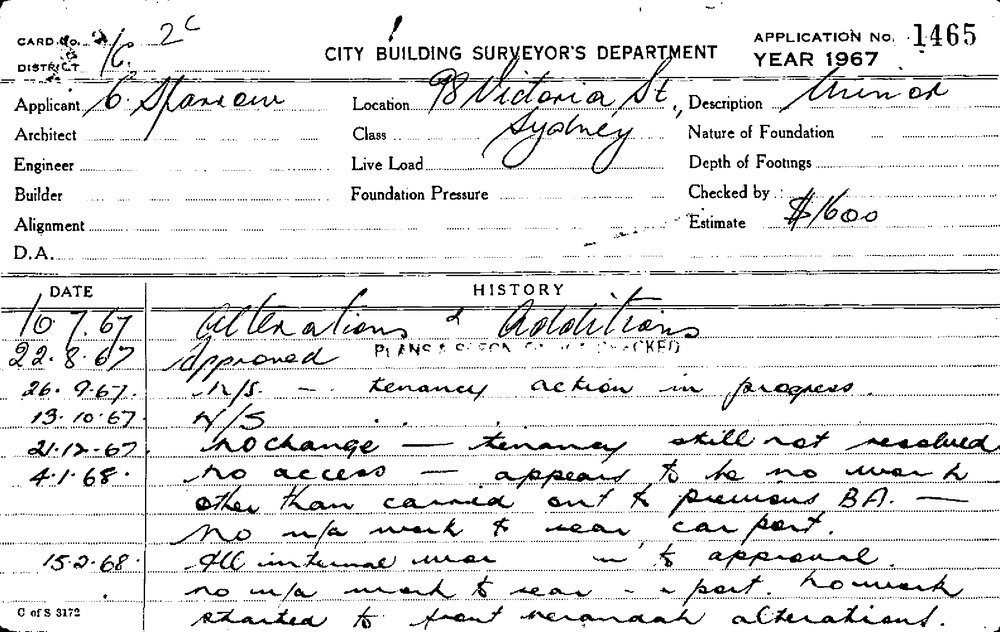 CARD No. 2C
DISTRICT
CITY BUILDING SURVEYOR'S DEPARTMENT
APPLICATION No. 1465
YEAR 1967
Applicant C. Sparrow
Location 98 Victoria St., Sydney
Description Minor
Architect
Class
Nature of Foundation
Engineer
Live Load
Depth of Footings
Builder
Foundation Pressure
Checked by
Alignment
Estimate $1600
D.A.
DATE HISTORY
10.7.67 Alterations & Additions
22.8.67 Approved PLANS & CHECKED
26.9.67. N/S. — tenancy action in progress.
13.10.67. N/S
21.12.67. No change — tenancy still not resolved
4.1.68. No access — appears to be no work
other than carried out to previous BA. —
No n/a work to rear car port.
15.2.68. All internal to approval.
no n/a work to rear port. No work
started to front verandah alterations.
C of S 3172